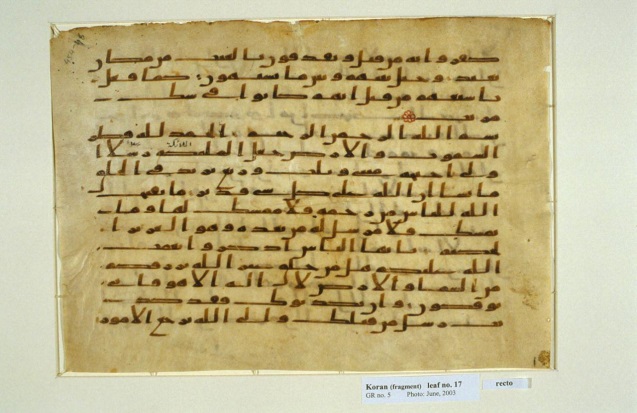 كفروا به من قبل ويقذفون بالغيب من مكان
بعيد وحيل بينهم وبين ما يشتهون كما فعل
باشيعهم من قبل انهم كانوا في شك
مريب
بسم الله الرحمن الرحيم الحمد لله فطر
السموت والارض جعل الملئكة رسلا ا
ولى اجنحة مثنى وثلث وربع يزيد في الخلق
ما يشا ان الله على كل شي قدير ما يفتح
الله للناس من رحمة فلا ممسك لها وما
يمسك فلا مرسل له من بعده وهو العزيز ا
لحكيم يايها الناس اذكروا نعمت
الله عليكم هل من خلق غير الله يرزقكم
من السما والارض لا اله الا هو فانى
توفكون وان يكذبوك فقد كذ
بت رسل من قبلك والى الله ترجع الامور
Koran (fragment) leaf no. 17 recto
GR no. 5 Photo: June, 2003